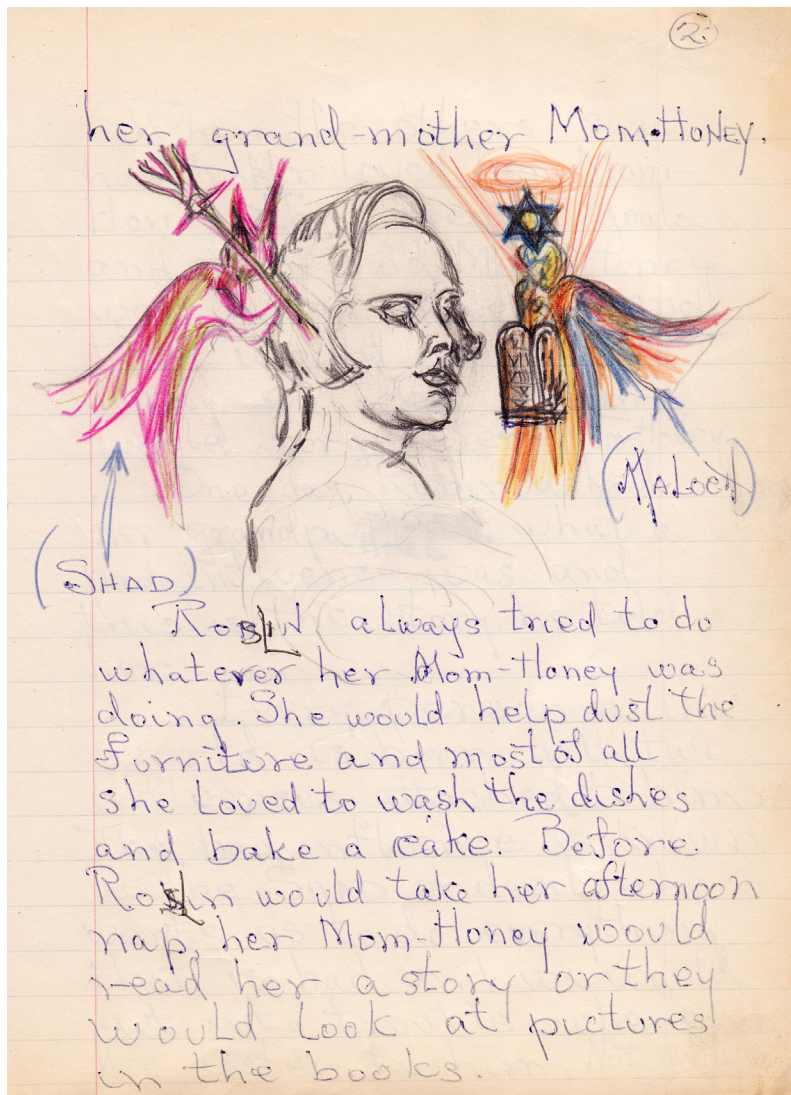 2.
her grand-mother Mom-Honey.
(Maloch)
(Shad)
Roslin always tried to do
whatever her Mom-Honey was
doing. She would help dust the
furniture and most of all
she loved to wash the dishes
and bake a cake. Before
Roslin would take her afternoon
nap, her Mom-Honey would
read her a story or they
would look at pictures
in the books.